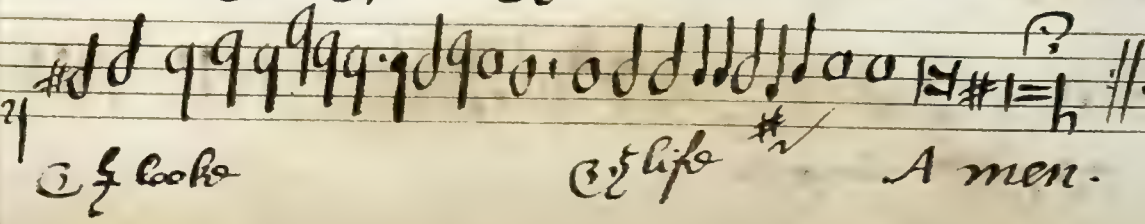 & looke & life A men.